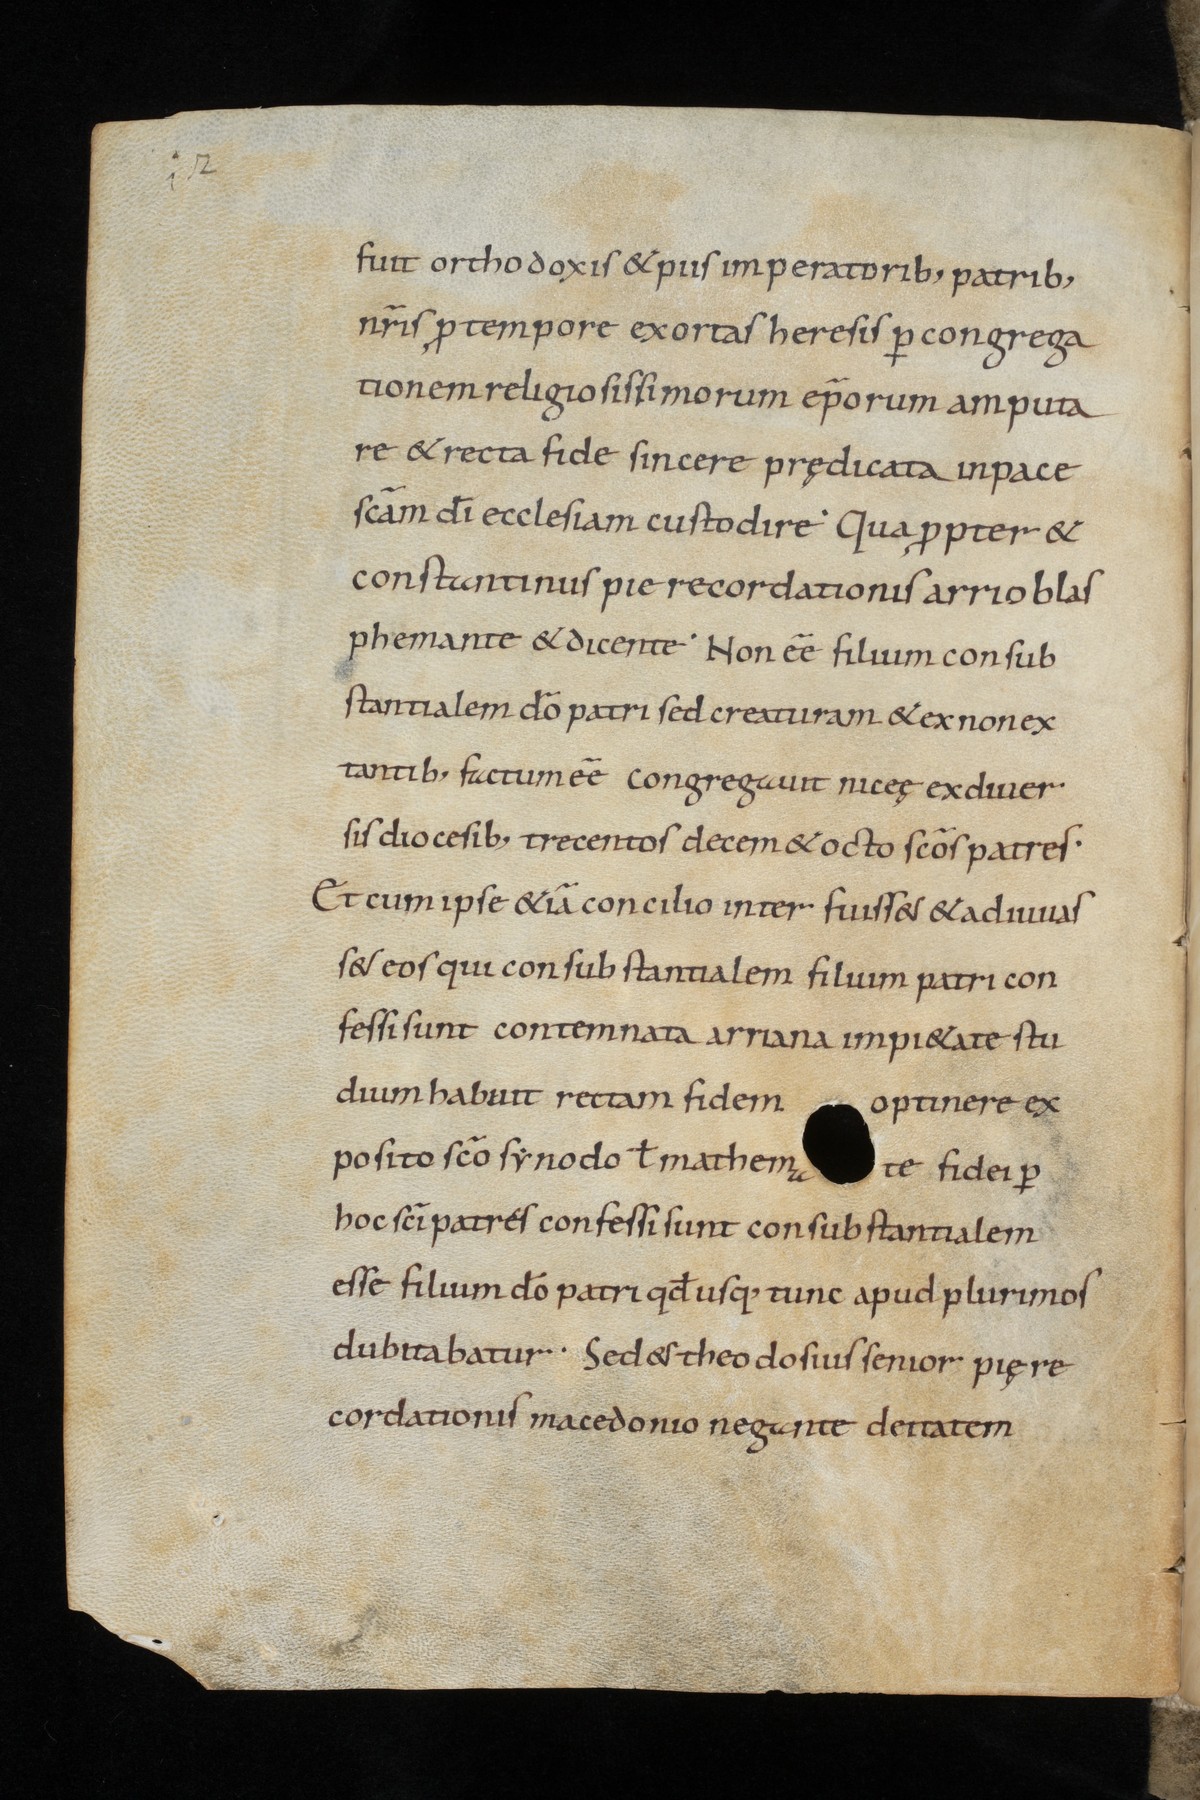 12
fuit orthodoxis & piis imperatorib; patrib;
nr̄is ꝓ tempore exortas heresis ꝑ congrega
tionem religiosissimorum ep̄orum amputa
re & recta fide sincere prędicata in pace
sc̄am dī ecclesiam custodire· Quaꝓpter &
constantinus pie recordationis arrio blas
phemante & dicente· Non eē filium consub
stantialem dō patri sed creaturam & ex non ex
tantib; factum eē congregauit niceę ex diuer
sis diocesib; trecentos decem & octo sc̄os patres·
Et cum ipse &iā concilio inter fuiss& & adiuuas
s& eos qui consubstantialem filium patri con
fessi sunt contemnata arriana impi&ate stu
dium habuit rectam fidem optinere ex
posito sc̄o synodo ƚ mathema te fidei ꝑ
hoc sc̄i patres confessi sunt consubstantialem
esse filium dō patri qđ usq; tunc apud plurimos
dubitabatur· Sed & theodosius senior pię re
cordationis macedonio negante deitatem